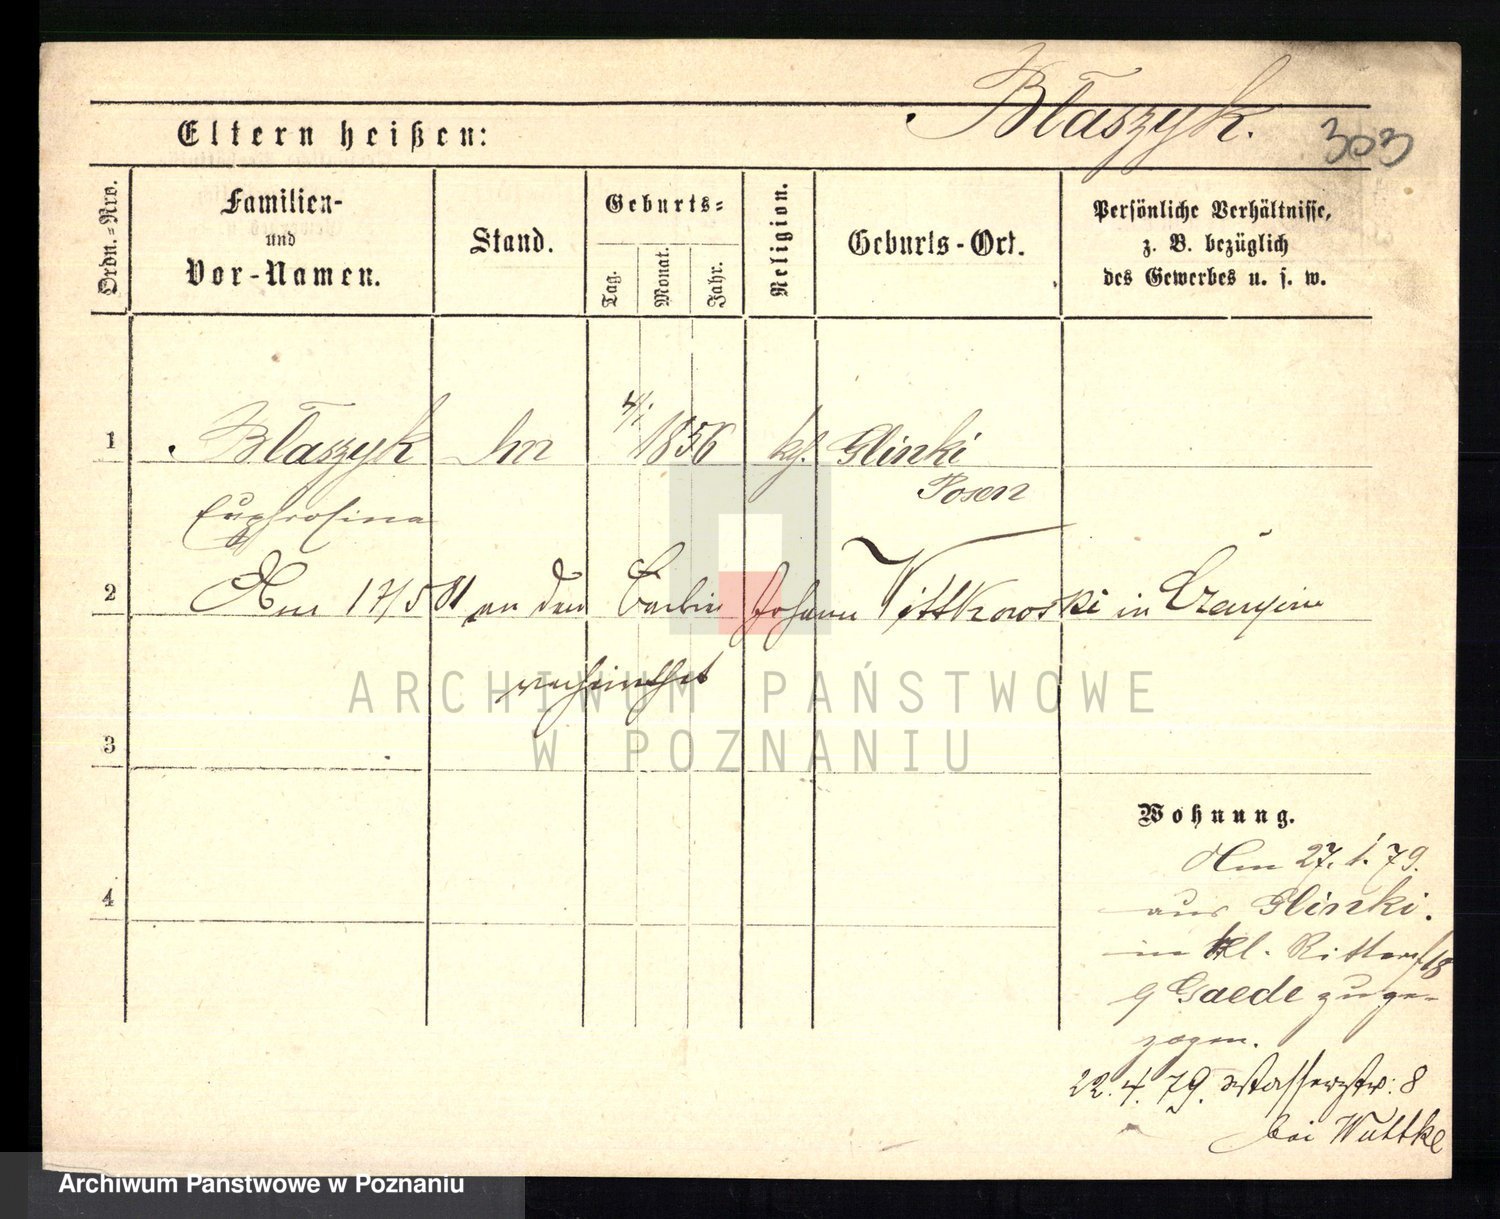 Błaszyk.
303
Eltern heißen:
Ordn.=Nro.
Familien-
und
Vor-Namen.
Stand.
Geburts=
Tag.
Monat.
Jahr.
Religion.
Geburts-Ort.
Persönliche Verhältnisse,
z. B. bezüglich
des Gewerbes u. s. w.
1 Błaszyk 4/1 1856 Glinki
Posen
Euphrosina
2 Am 17/5 81 an den Johann Wittkowski in
verheirathet
ARCHIWUM PAŃSTWOWE
W POZNANIU
3
Wohnung.
Am 27.1.79.
4
aus Glinki.
in kl. Ritterst 18
Gaede zuge-
zogen.
22.4.79. Wasserstr: 8
bei Wuttke
Archiwum Państwowe w Poznaniu